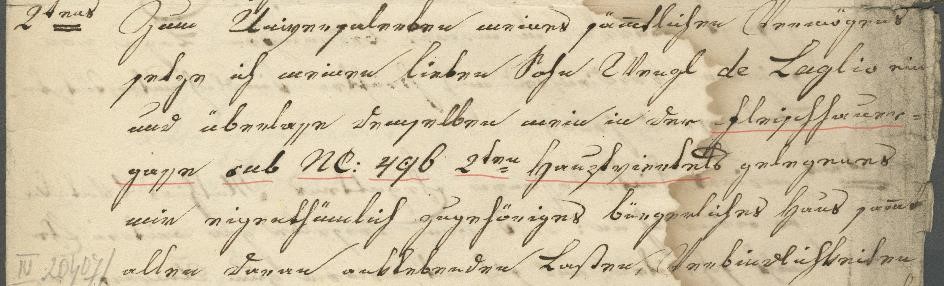 2tens Zum Universalerben meines sämtlichen Vermögens
setze ich meinen lieben Sohn Wenzl de Laglio ein
und überlasse demselben mein in der Fleischhauer-
gasse sub NC: 496 2ten Hauptviertels gelegenes
mir eigenthümlich zugehöriges bürgerliches Haus samt
allen daran anklebenden Lasten, Verbindlichkeiten
IV 20407/